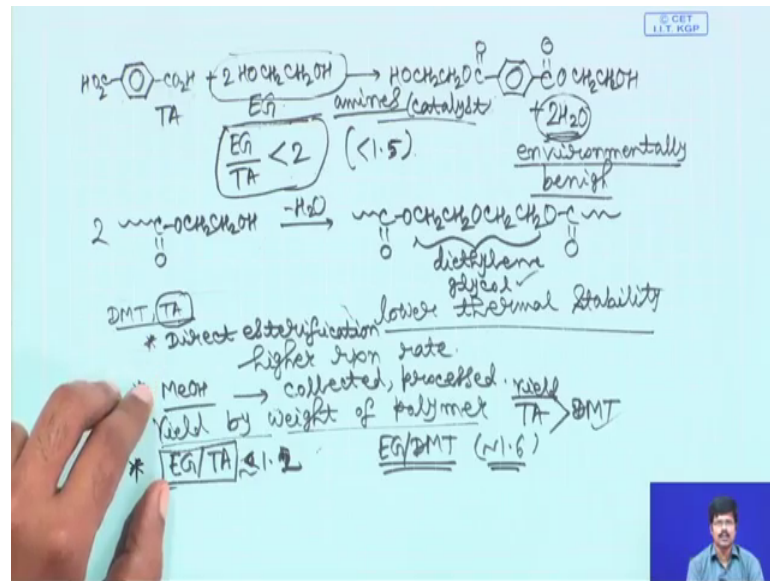 © CET
I.I.T. KGP
HO₂C CO₂H + 2 HOCH₂CH₂OH → HOCH₂CH₂OC C OCH₂CH₂OH
O O
TA EG amines (catalyst) + 2H₂O
EG/TA < 2 (<1.5). environmentally
benign
2 ~C-OCH₂CH₂OH -H₂O → ~C-OCH₂CH₂OCH₂CH₂O-C~
O O O
diethylene
glycol ✓
DMT, TA lower thermal stability
* Direct esterification
higher rxn rate.
* MeOH → collected, processed. yield
Yield by weight of polymer TA > DMT
* EG/TA <1.2 EG/DMT (~1.6)